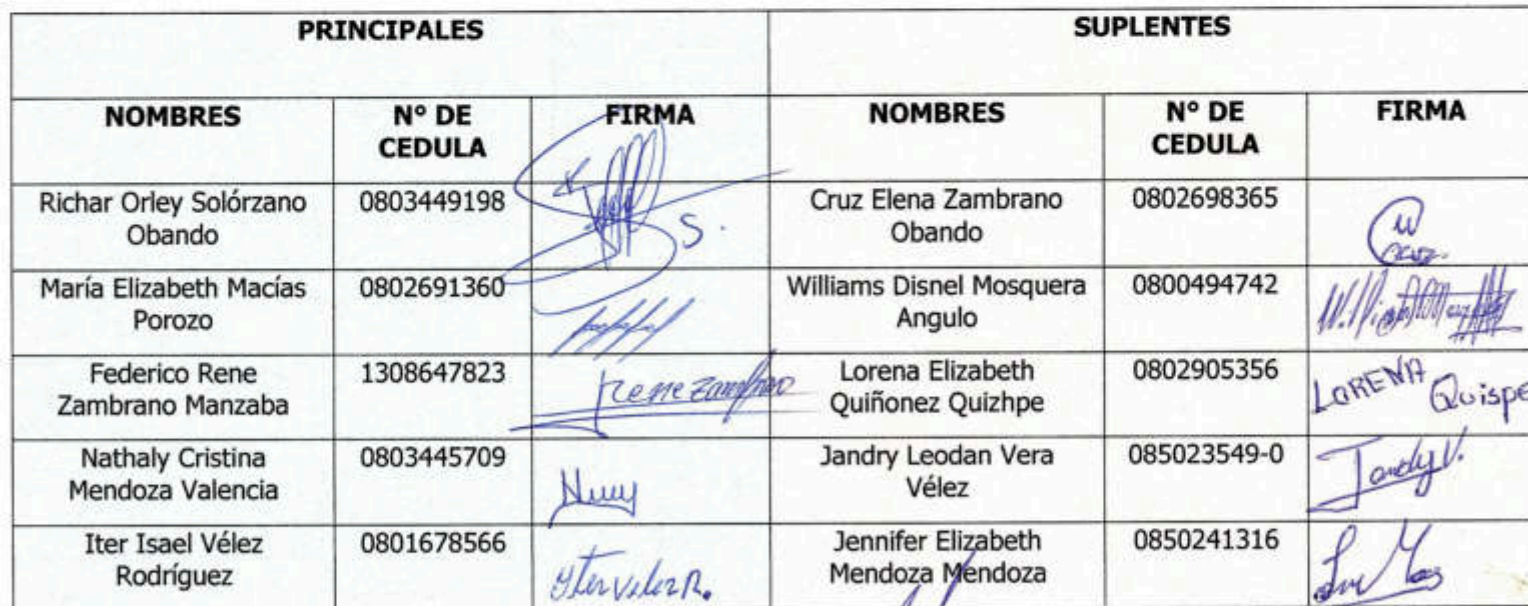 PRINCIPALES SUPLENTES
NOMBRES N° DE CEDULA FIRMA NOMBRES N° DE CEDULA FIRMA
Richar Orley Solórzano Obando 0803449198 S. Cruz Elena Zambrano Obando 0802698365 Cruz
María Elizabeth Macías Porozo 0802691360 Williams Disnel Mosquera Angulo 0800494742
Federico Rene Zambrano Manzaba 1308647823 Rene Zambrano Lorena Elizabeth Quiñonez Quizhpe 0802905356 LORENA Quispe
Nathaly Cristina Mendoza Valencia 0803445709 Jandry Leodan Vera Vélez 085023549-0 Jandry V.
Iter Isael Vélez Rodríguez 0801678566 Iter Velez R. Jennifer Elizabeth Mendoza Mendoza 0850241316